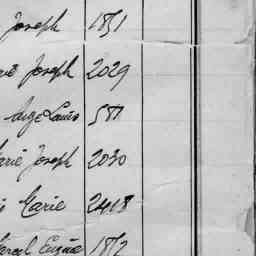 Joseph 1851
Joseph 2029
Ange Louis 511
Marie Joseph 2030
Marie 2418
Marcel Eugène 1812